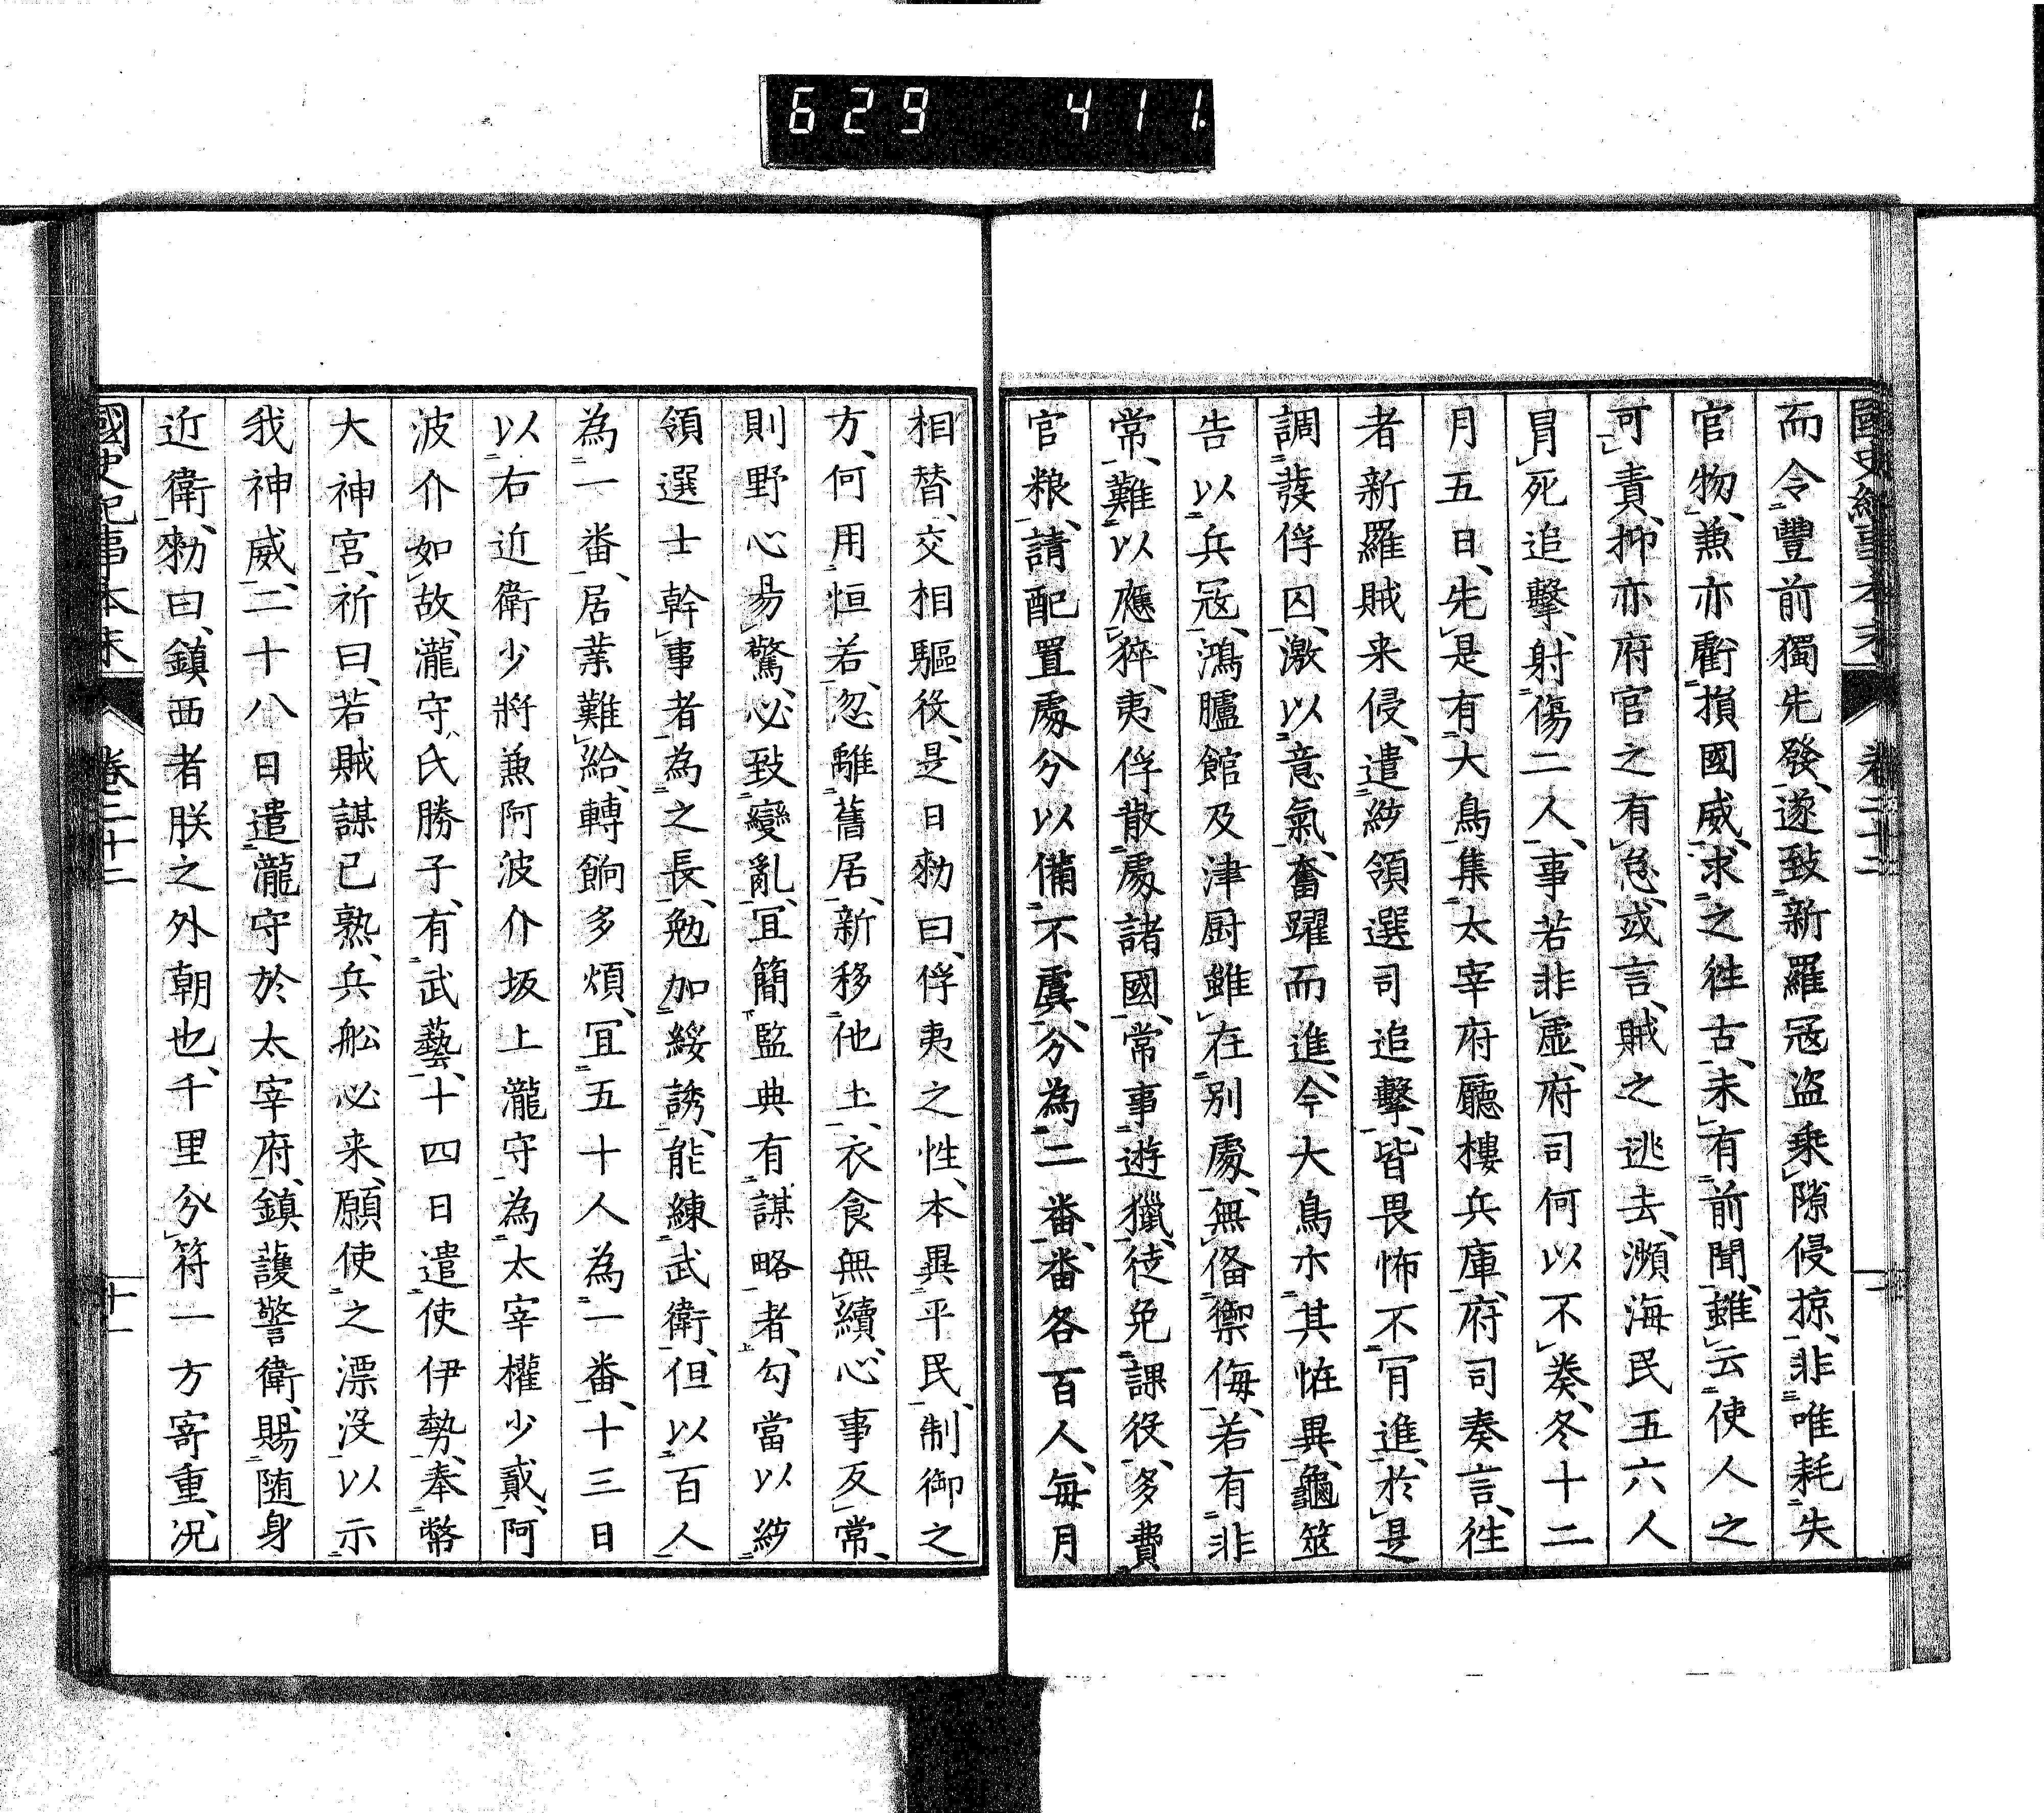 629 411
國史紀事本末 卷二十二
而令豐前獨先發、遂致新羅冦盗乘隙侵掠、非唯耗失
官物、兼亦虧損國威、求之徃古、未有前聞、雖云使人之
可責、抑亦府官之有怠、或言、賊之逃去、瀕海民五六人
冐死追擊、射傷二人、事若非虛、府司何以不奏、冬十二
月五日、先是有大鳥集太宰府廳樓兵庫、府司奏言、徃
者新羅賊来侵、遣㢧領選司追擊、皆畏怖不肎進、於是
調發俘囚、激以意氣、奮躍而進、今大鳥示其恠異、龜筮
告以兵冦、鴻臚館及津厨雖在别處、無俻禦侮、若有非
常、難以應猝、夷俘散處諸國、常事遊獵、徒免課役、多費
官粮、請配置處分以備不虞、分為二番、番各百人、每月
相替、交相驅役、是日勑曰、俘夷之性、本異平民、制御之
方、何用恒若、忽離舊居、新移他土、衣食無續、心事反常、
則野心易驚、必致變亂、宜簡監典有謀略者、勾當以㢧
領選士幹事者、為之長、勉加綏誘、能練武衛、但以百人
為一番、居業難給、轉餉多煩、宜五十人為一番、十三日
以右近衛少將兼阿波介坂上瀧守、為太宰權少貳、阿
波介如故、瀧守、氏勝子、有武藝、十四日遣使伊勢、奉幣
大神宮、祈曰、若賊謀已熟、兵舩必来、願使之漂没、以示
我神威、二十八日遣瀧守於太宰府、鎮護警衛、賜随身
近衛、勑曰、鎮西者朕之外朝也、千里分符一方寄重、况
國史紀事本末 卷二十二 十一